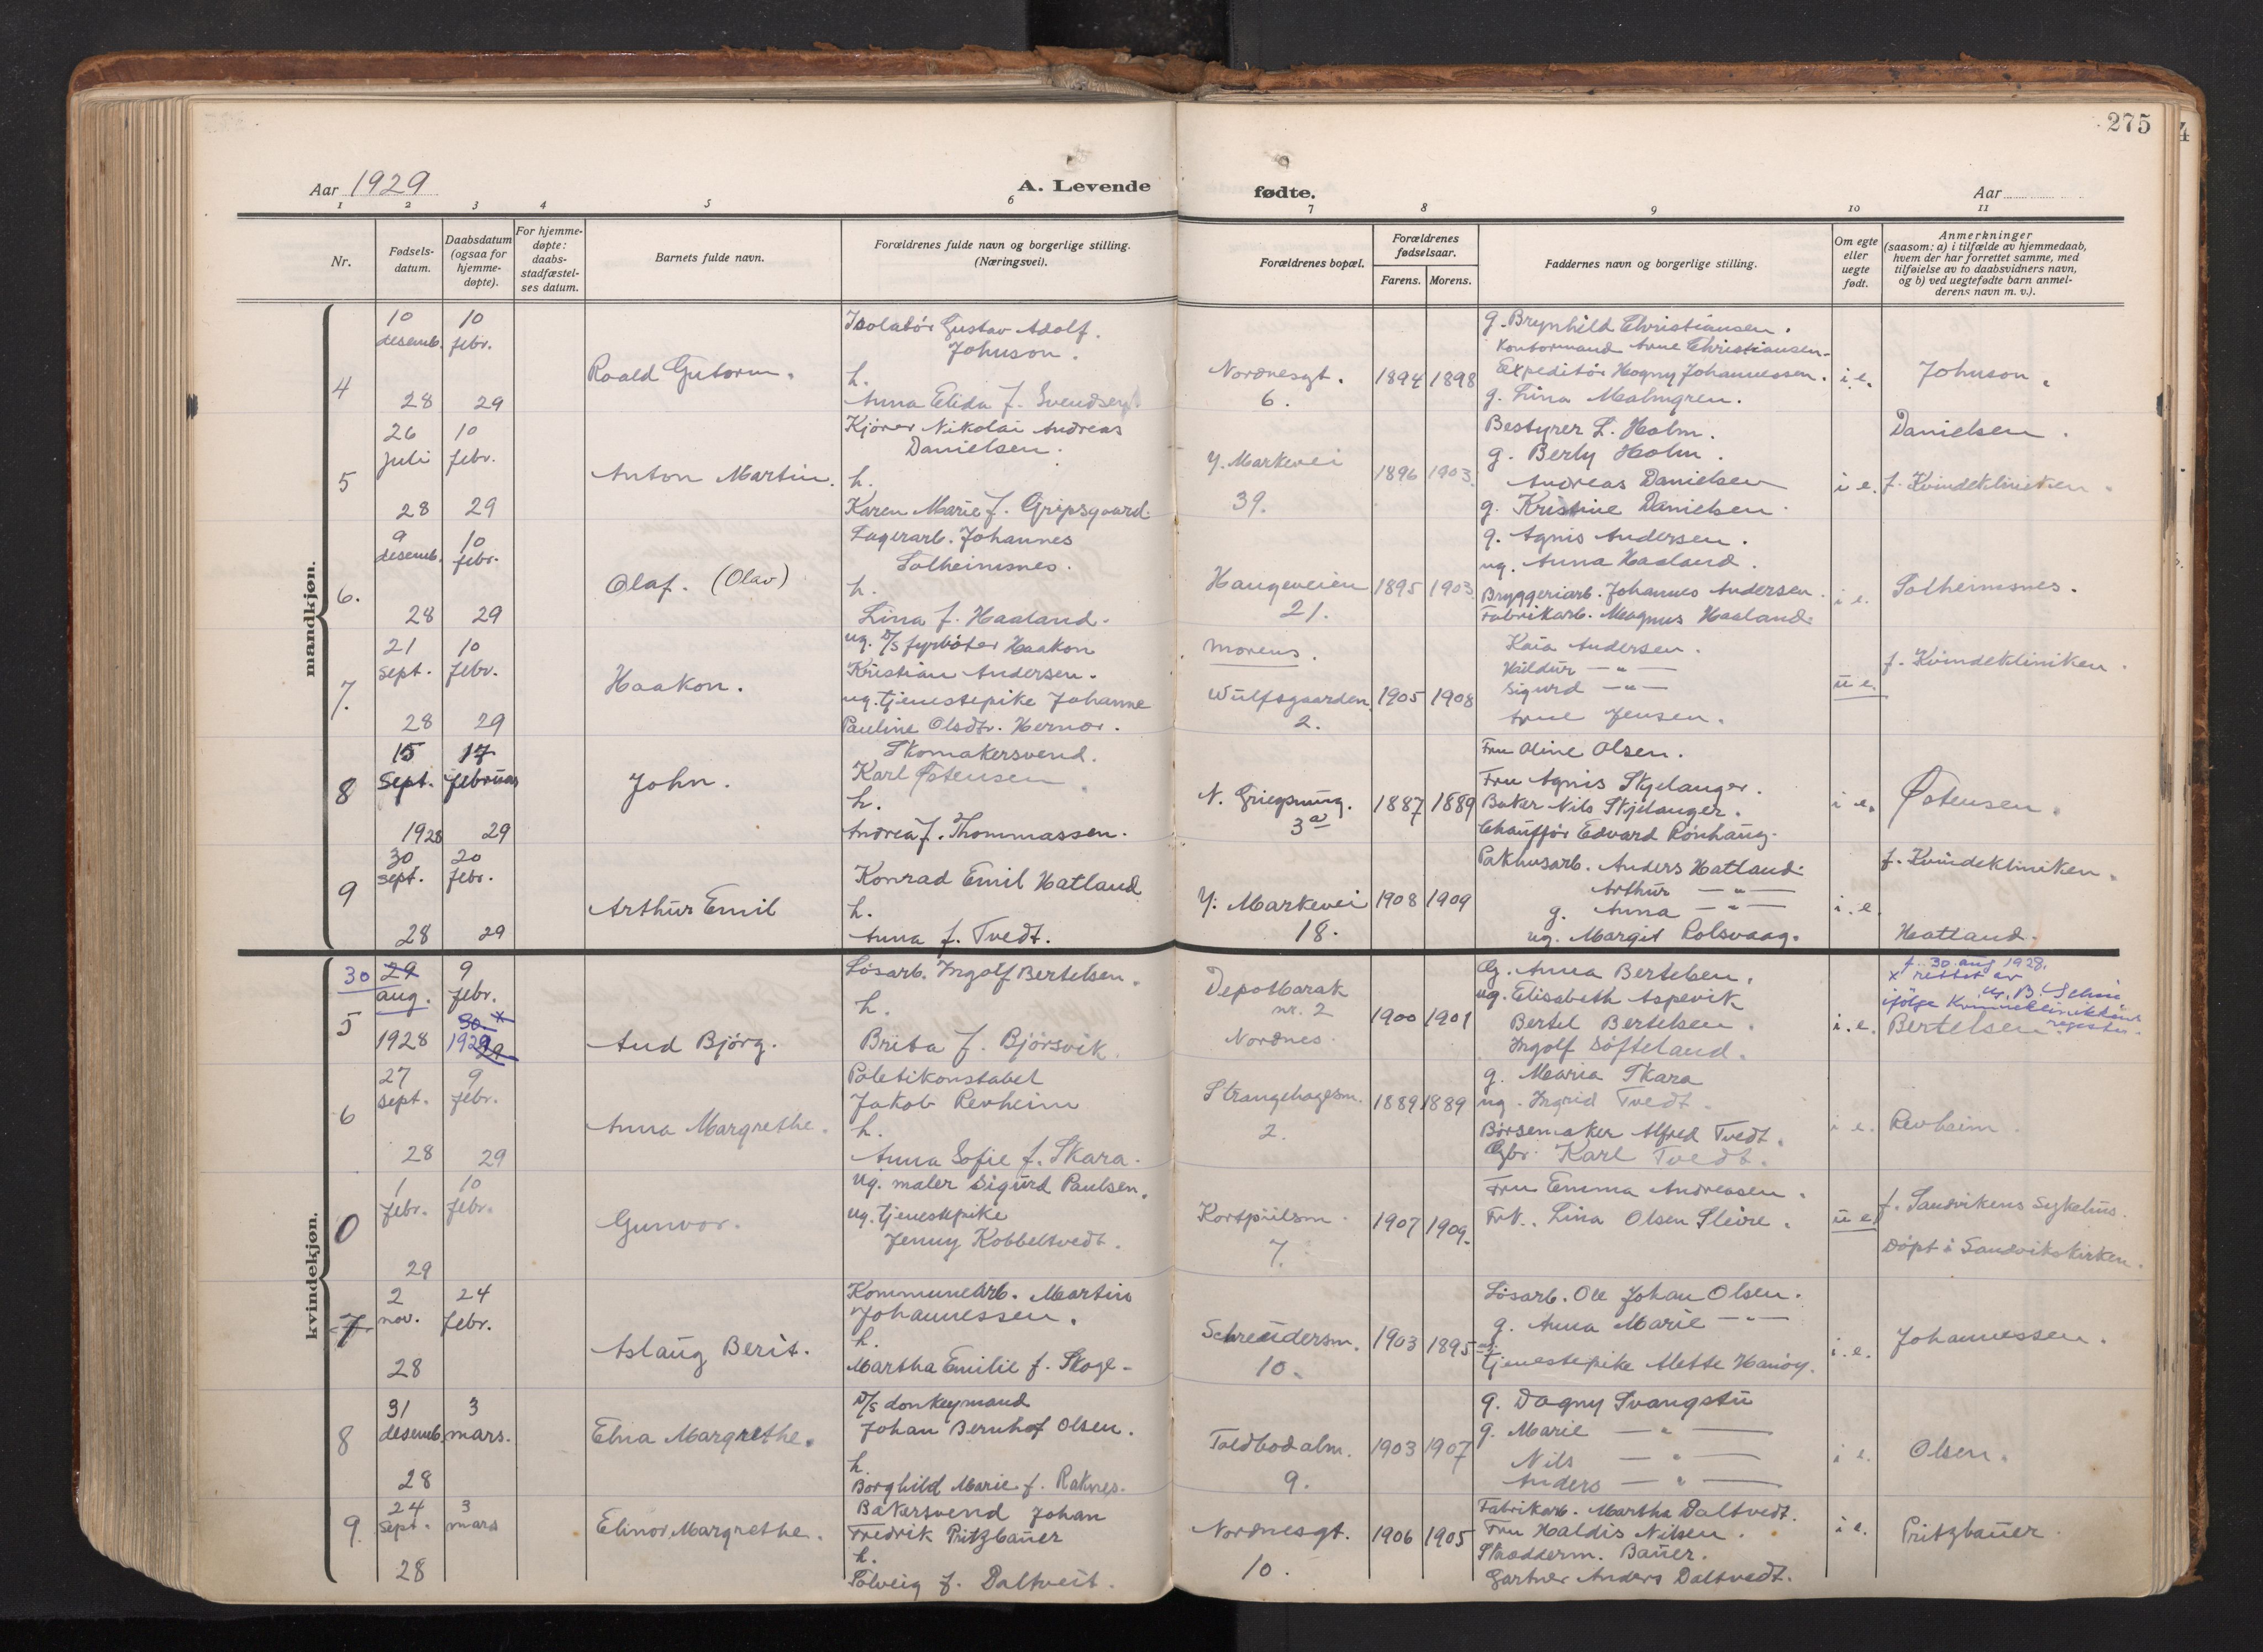 275
Aar 1929
A. Levende fødte.
Aar
1 2 3 4 5 6 7 8 9 10 11
Nr.
Fødsels-
datum.
Daabsdatum
(ogsaa for
hjemme-
døpte).
For hjemme-
døpte:
daabs-
stadfæstel-
ses datum.
Barnets fulde navn.
Forældrenes fulde navn og borgerlige stilling.
(Næringsvei).
Forældrenes bopæl.
Forældrenes
fødselsaar.
Farens. Morens.
Faddernes navn og borgerlige stilling.
Om egte
eller
uegte
født.
Anmerkninger
(saasom: a) i tilfælde av hjemmedaab,
hvem der har forrettet samme, med
tilføielse av to daabsvidners navn,
og b) ved uegtefødte barn anmel-
derens navn m. v.).
mandkjøn.
4
10 desemb. 28
10 febr. 29
Roald Gutorm.
Isolatør Gustav Adolf.
Johnson.
h.
Anna Elida f. Svendsen.
Nordnesgt.
6.
1894 1898
g. Brynhild Christiansen.
Kontormand Arne Christiansen.
Expeditør Hogny Johannessen.
g. Lina Malmgren.
i. e.
Johnson.
5
26 juli 28
10 febr. 29
Anton Martin.
Kjører Nikolai Andreas
Danielsen.
h.
Karen Marie f. Gripsgaard.
Y. Markevei
39.
1896 1903.
Bestyrer L. Holm.
g. Berly Holm.
Andreas Danielsen
g. Kristine Danielsen.
i e.
Danielsen.
f. Kvindekliniken.
6.
9 desemb. 28
10 febr. 29
Olaf. (Olav)
Lagerarb. Johannes
Solheimsnes.
h.
Lina f. Haaland.
Haugeveien
21.
1895 1903
g. Agnis Andersen.
ug. Anna Haaland.
Bryggeriarb. Johannes Andersen.
Fabrikarb. Magnus Haaland.
i e.
Solheimsnes.
7.
21 sept. 28
10 febr. 29
Haakon.
ug. D/S fyrbøter Haakon
Kristian Andersen.
ug. tjenestepike Johanne
Pauline Olsdtr. Hernor.
morens.
Wulfsgaarden
2.
1905 1908
Kaia Andersen.
Haldur — " —
Sigurd — " —
Arne Jensen.
u e.
f. Kvindekliniken.
8
15 Sept. 1928
17 februar 29
John.
Skomakersvend.
Karl Østensen
h.
Andrea f. Thommassen.
N. Griegsmug.
3 a
1887 1889
Fru Oline Olsen.
Fru Agnis Skjelanger.
Baker Nils Skjelanger.
Chauffør Edvard Rønhaug.
i e.
Østensen.
9
30 sept. 28
20 febr. 29
Arthur Emil
Konrad Emil Hatland
h.
Anna f. Tvedt.
Y. Markevei
18.
1908 1909
Pakhusarb. Anders Hatland.
Arthur — " —
g. Anna — " —
ug. Margit Rolsvaag.
i. e.
f. Kvindekliniken.
Hatland.
kvindekjøn.
5
30 29 aug. 1928
9 febr. 30. x 1929 29
Aud Bjørg.
Løsarb. Ingolf Bertelsen.
h.
Brita f. Bjørsvik.
Depotbarak
nr. 2
Nordnes.
1900 1901
Eg. Anna Bertelsen.
ug. Elisabeth Aspevik
Bertel Bertelsen.
Ingolf Søfteland.
i. e.
f. 30. aug 1928.
x rettet av
ifølge Kvinneklinikkens
register.
Bertelsen
6
27 sept. 28
9 febr. 29
Anna Margrethe.
Poletikonstabel
Jakob Revheim
h.
Anna Sofie f. Skara.
Strangehagesm.
2.
1889 1889
g. Maria Skara
ug. Ingrid Tvedt.
Børsemaker Alfred Tvedt.
Egbr. Karl Tvedt.
i e.
Revheim.
0
1 febr. 29
10 febr.
Gunvor.
ug. maler Sigurd Paulsen.
ug. tjenestepike
Jenny Kobbeltvedt.
Kortpiilsm.
7.
1907 1909.
Fru Emma Andreasen.
Frk. Lina Olsen Sleire.
u e
f. Sandvikens Sykehus.
Døpt i Sandvikskirken.
7
2 nov. 28
24 febr.
Aslaug Berit.
Kommunearb. Martin
Johannessen.
h.
Martha Emilie f. Skoge.
Schreudersm.
10.
1903 1895
Løsarb. Ole Johan Olsen.
g. Anna Marie — " —
ug. tjenestepike Alette Hanøy.
i. e.
Johannessen.
8
31 desemb. 28
3 mars.
Elna Margrethe.
D/S donkeymand
Johan Bernhof Olsen.
h.
Borghild Marie f. Raknes.
Toldbodalm.
9.
1903 1907
g. Dagny Svangstu
g. Marie — " —
Nils — " —
Anders — " —
i e.
Olsen.
9.
24 sept. 28
3 mars
Elinor Margrethe.
Bakersvend Johan
Fredrik Pritzbauer
h.
Solveig f. Daltveit.
Nordnesgt.
10.
1906 1905
Fabrikarb. Martha Daltvedt.
Fru Haldis Nilsen.
Skredderm. Bauer.
Gartner Anders Daltvedt.
i e.
Pritzbauer.